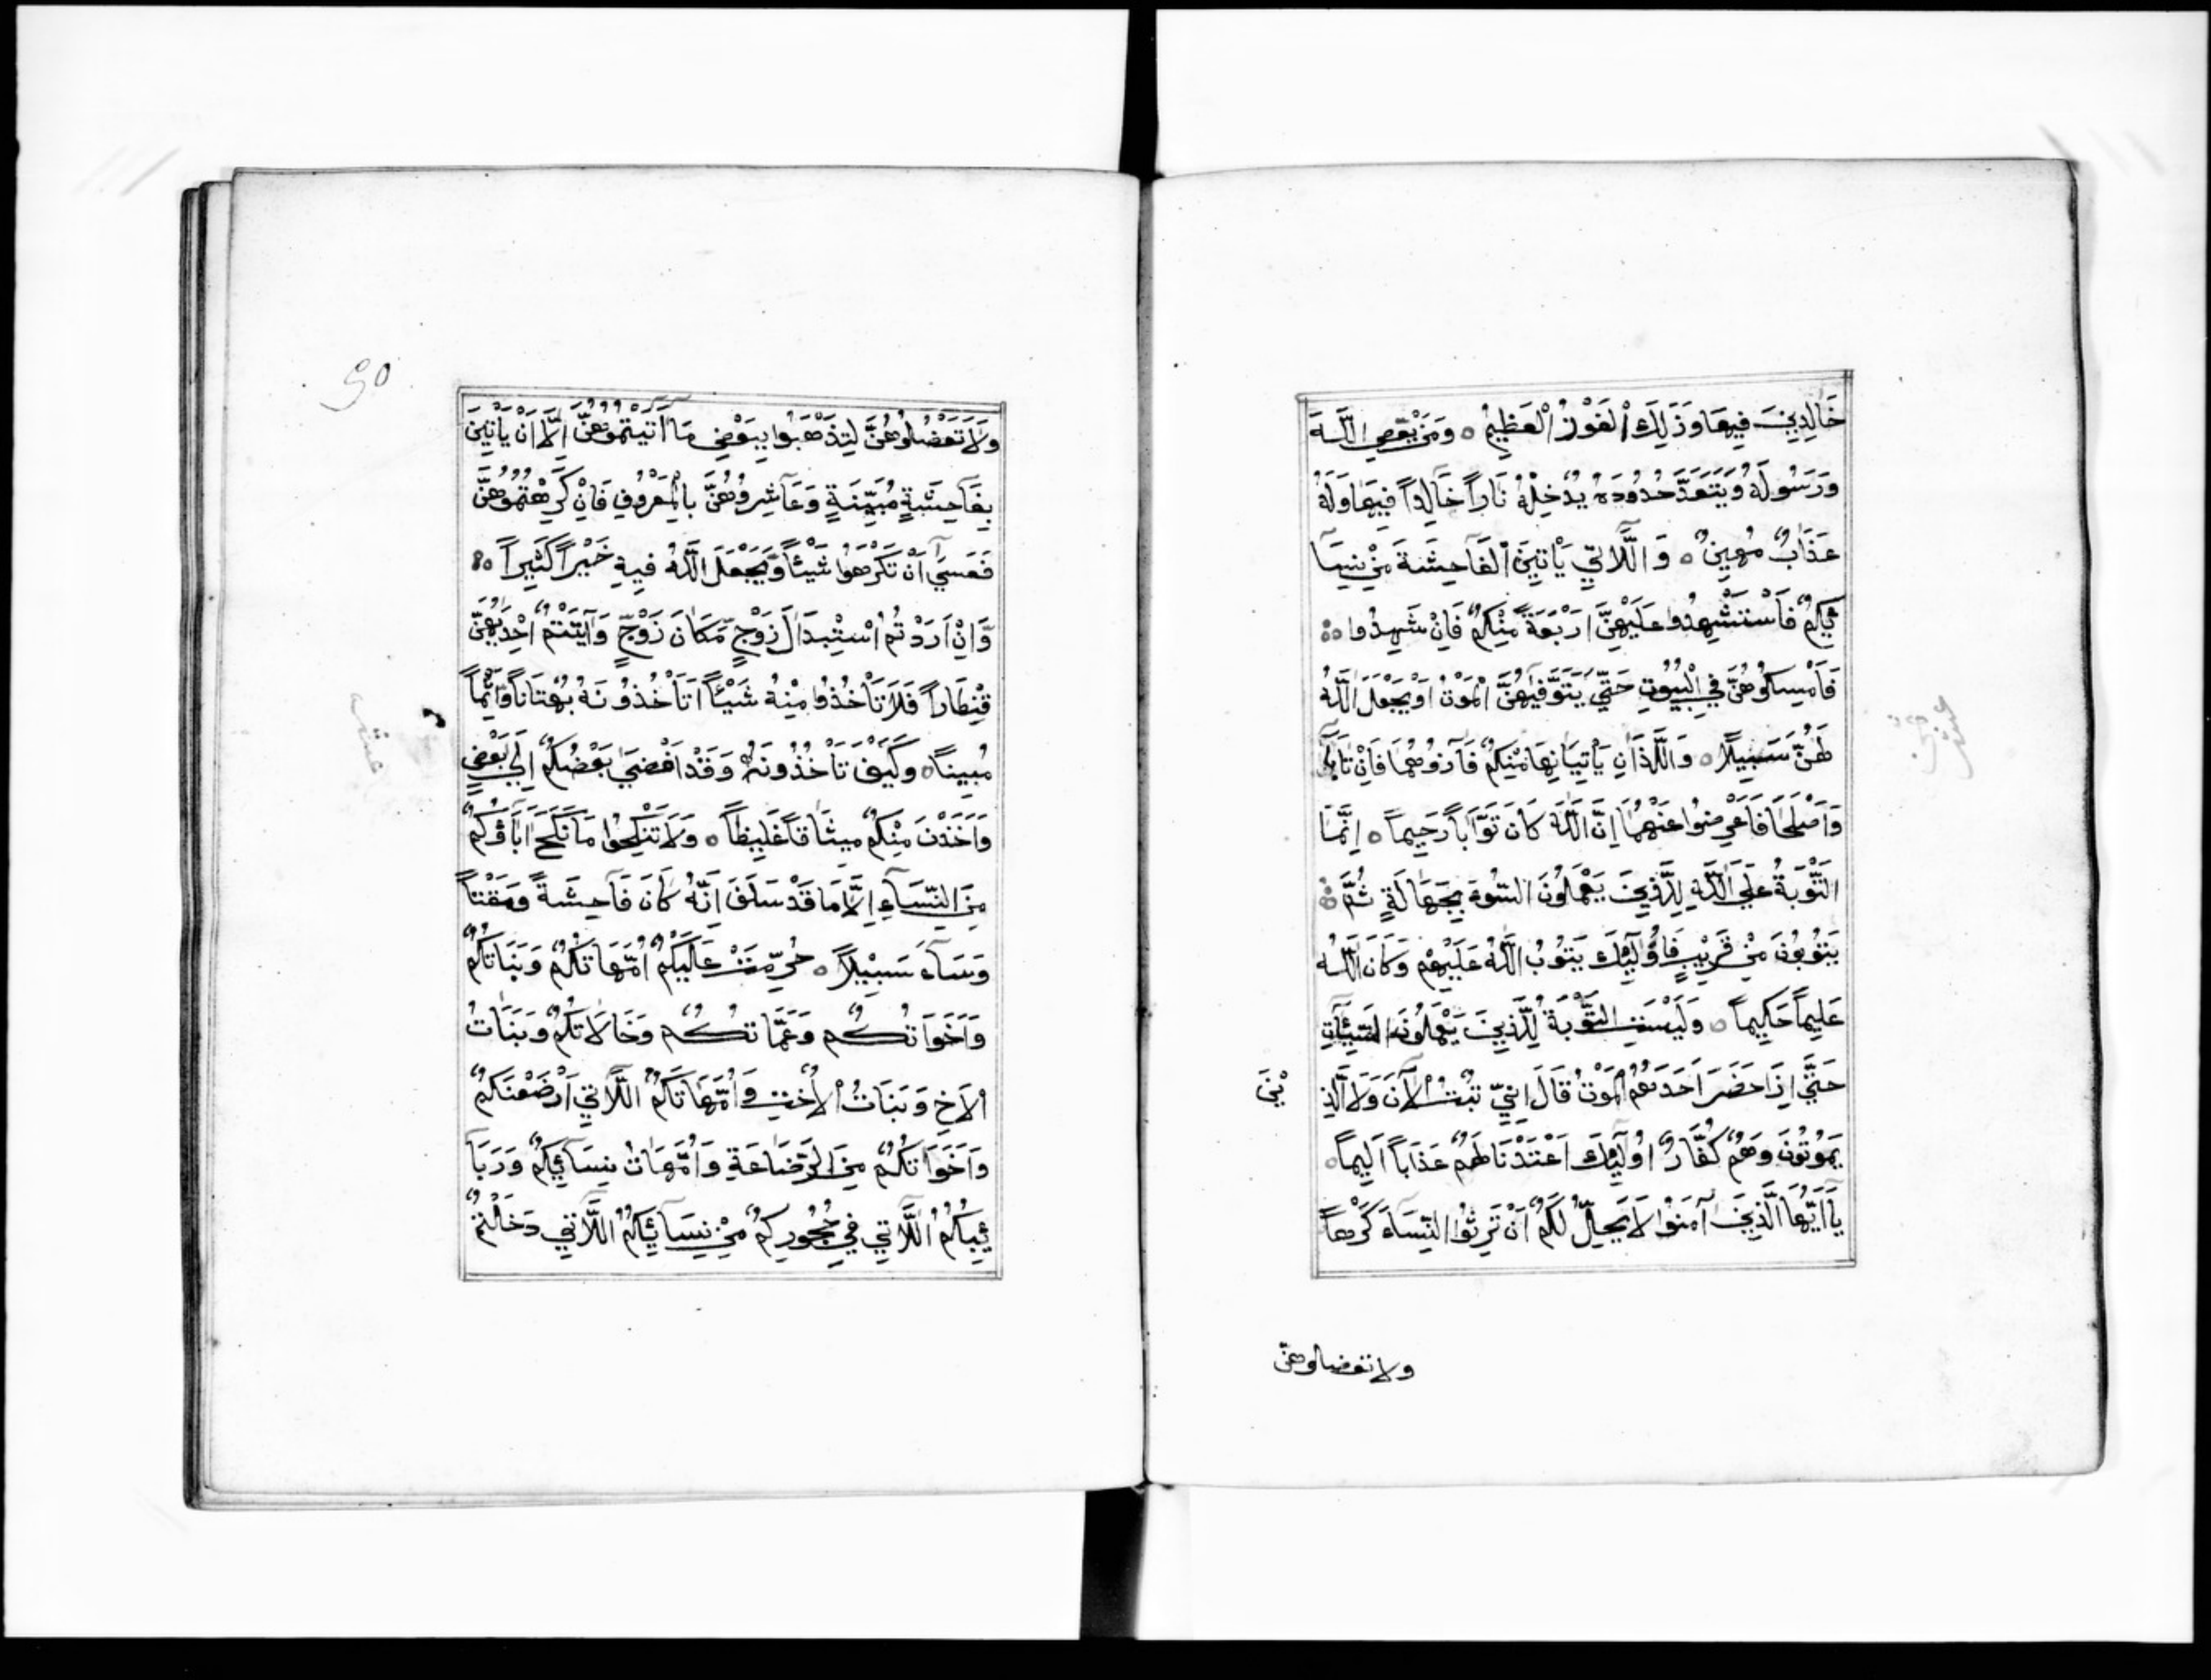 خَالِدِينَ فِيهَا وَذَلِكَ الْفَوْزُ الْعَظِيمُ ه وَمَنْ يَعْصِ اللَّهَ
وَرَسُولَهُ وَيَتَعَدَّ حُدُودَهُ يُدْخِلْهُ نَاراً خَالِداً فِيهَا وَلَهُ
عَذَابٌ مُهِينٌ ه وَاللَّاتِي يَأْتِينَ الْفَاحِشَةَ مِنْ نِسَآ
ئِكُمْ فَاسْتَشْهِدُوا عَلَيْهِنَّ اَرْبَعَةً مِنْكُمْ فَاِنْ شَهِدُوا
فَاَمْسِكُوهُنَّ فِي الْبُيُوتِ حَتَّي يَتَوَفَّيهُنَّ الْمَوْتُ اَوْ يَجْعَلَ اللَّهُ
لَهُنَّ سَبِيلًا ه وَاللَّذَانِ يَأْتِيَانِهَا مِنْكُمْ فَآذُوهُمَا فَاِنْ تَابَا
وَاَصْلَحَا فَاَعْرِضُوا عَنْهُمَا اِنَّ اللَّهَ كَانَ تَوَّاباً رَحِيماً ه اِنَّمَا
التَّوْبَةُ عَلَي اللَّهِ لِلَّذِينَ يَعْمَلُونَ السُّوءَ بِجَهَالَةٍ ثُمَّ
يَتُوبُونَ مِنْ قَرِيْبٍ فَاُولَٓئِكَ يَتُوبُ اللَّهُ عَلَيْهِمْ وَكَانَ اللَّهُ
عَلِيماً حَكِيماً ه وَلَيْسَتِ التَّوْبَةُ لِلَّذِينَ يَعْمَلُونَ السَّيِّئَاتِ
حَتَّي اِذَا حَضَرَ اَحَدَهُمُ الْمَوْتُ قَالَ اِنِّي تُبْتُ الْآنَ وَلَا الَّذِ
يْنَ
يَمُوتُونَ وَهُمْ كُفَّارٌ اُولَٓئِكَ اَعْتَدْنَا لَهُمْ عَذَاباً اَلِيماً ه
يَآ اَيُّهَا الَّذِينَ آمَنُوا لَا يَحِلُّ لَكُمْ اَنْ تَرِثُوا النِّسَآءَ كَرْهاً
ولا تعضلوهنّ
وَلَا تَعْضُلُوهُنَّ لِتَذْهَبُوا بِبَعْضِ مَا آتَيْتُمُوهُنَّ اِلَّا اَنْ يَأْتِينَ
بِفَاحِشَةٍ مُبَيِّنَةٍ وَعَاشِرُوهُنَّ بِالْمَعْرُوفِ فَاِنْ كَرِهْتُمُوهُنَّ
فَعَسَي اَنْ تَكْرَهُوا شَيْئاً وَيَجْعَلَ اللَّهُ فِيهِ خَيْراً كَثِيراً ه
وَاِنْ اَرَدْتُمُ اسْتِبْدَالَ زَوْجٍ مَكَانَ زَوْجٍ وَآتَيْتُمْ اِحْدَيهُنَّ
قِنْطَاراً فَلَا تَأْخُذُوا مِنْهُ شَيْئاً اَتَأْخُذُونَهُ بُهْتَاناً وَاِثْماً
مُبِيناً ه وَكَيْفَ تَأْخُذُونَهُ وَقَدْ اَفْضَي بَعْضُكُمْ اِلَي بَعْضٍ
وَاَخَذْنَ مِنْكُمْ مِيثَاقاً غَلِيظاً ه وَلَا تَنْكِحُوا مَا نَكَحَ آبَاؤُكُمْ
مِنَ النِّسَآءِ اِلَّا مَا قَدْ سَلَفَ اِنَّهُ كَانَ فَاحِشَةً وَمَقْتاً
وَسَآءَ سَبِيْلاً ه حُرِّمَتْ عَلَيْكُمْ اُمَّهَاتُكُمْ وَبَنَاتُكُمْ
وَاَخَوَاتُكُمْ وَعَمَّاتُكُمْ وَخَالَاتُكُمْ وَبَنَاتُ
الْاَخِ وَبَنَاتُ الْاُخْتِ وَاُمَّهَاتُكُمُ اللَّاتِي اَرْضَعْنَكُمْ
وَاَخَوَاتُكُمْ مِنَ الرَّضَاعَةِ وَاُمَّهَاتُ نِسَآئِكُمْ وَرَبَآ
ئِبُكُمُ اللَّاتِي فِي حُجُورِكُمْ مِنْ نِسَآئِكُمُ اللَّاتِي دَخَلْتُمْ